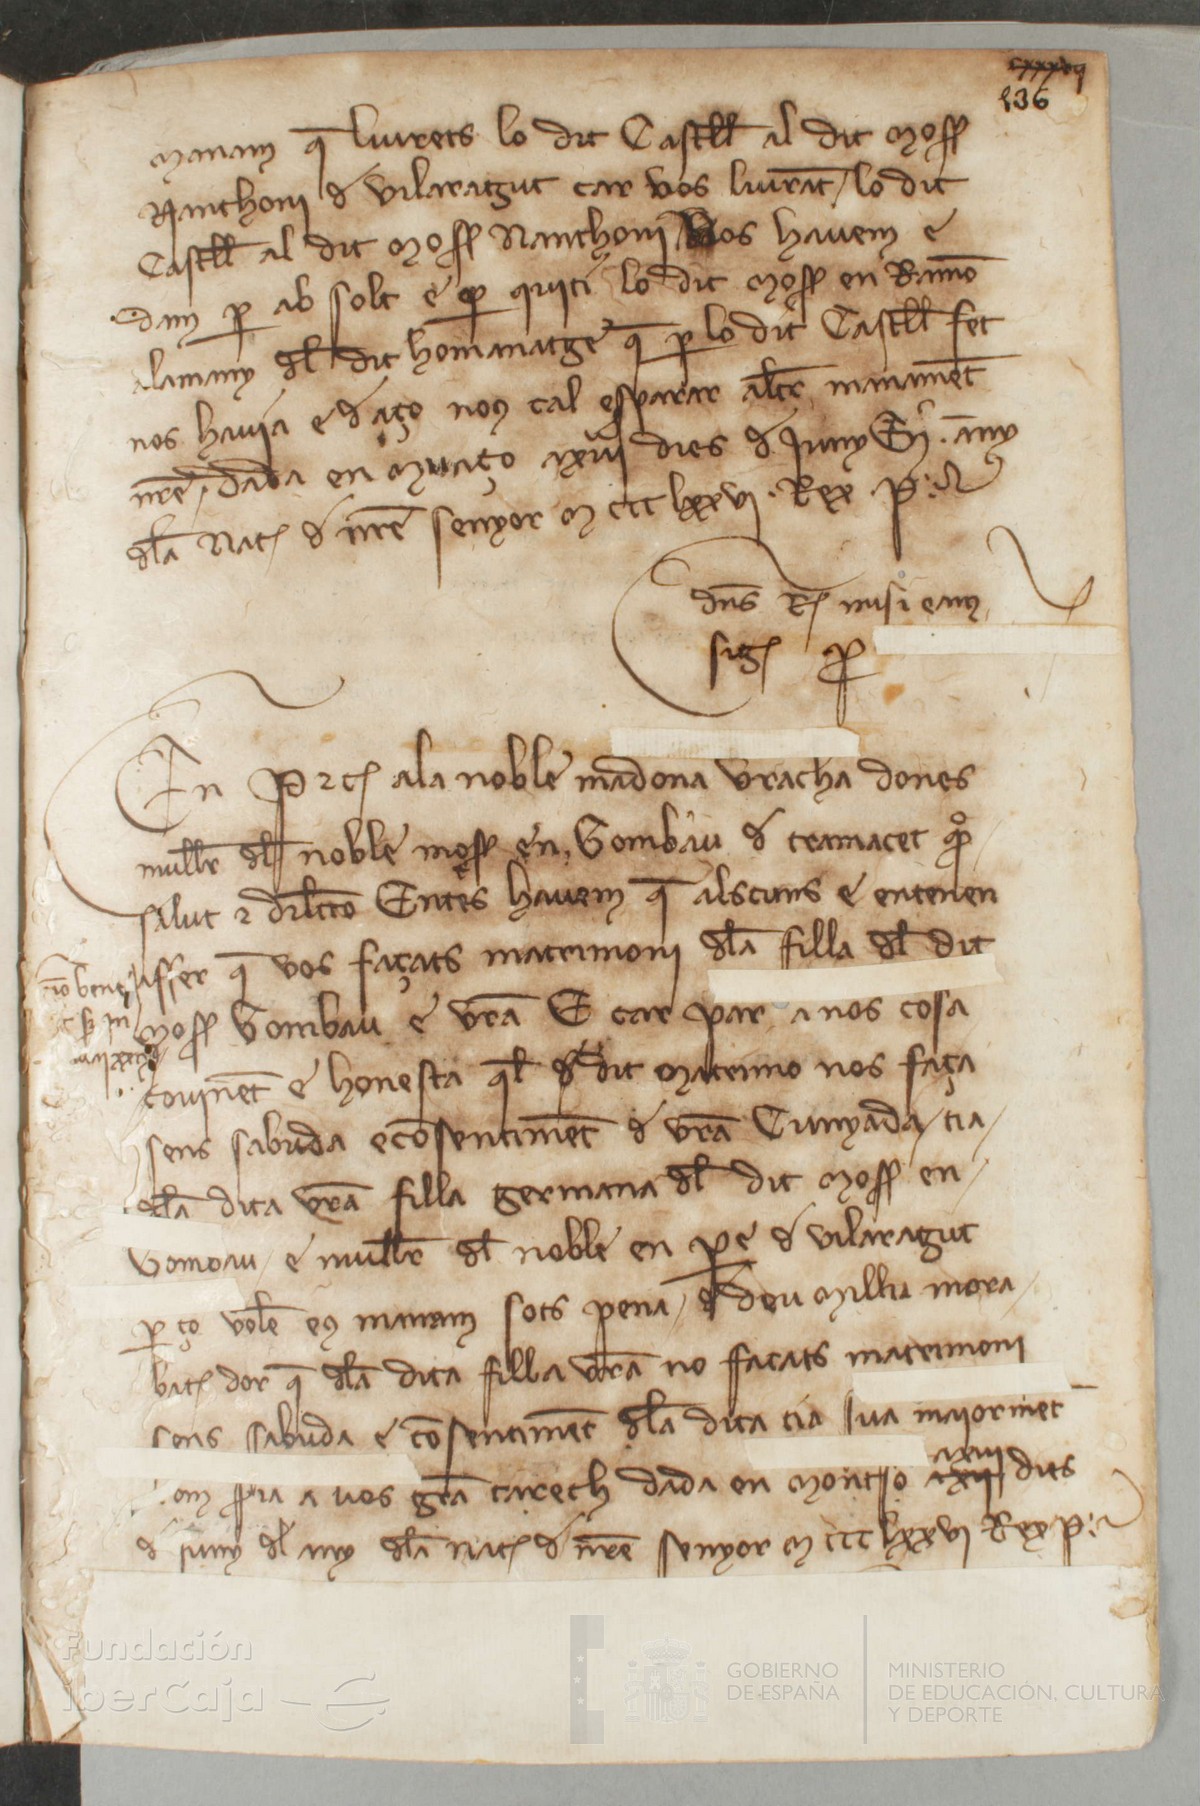 136
manam q̄ liurets lo dit Castell al dit Mossen
Nanthoni de vilaragut car vos liurat lo dit
Castell al dit Mossen Nanthoni vos havem e
dam per absolt e per quiti lo dit Mossen en Ramō
alamany del dit homanatge q̄ per lo dit Castell fet
nos havia e daço nous cal esparar altre manamēt
nr̄e dada en dies de Juny any
dela Nat de nr̄e senyor M ccc lxxvi Rex P
dn̄s Rex misi eam
sig P
En P etc ala noble madona vracha dones
muller del noble mossen en Gombau de tramacet
salut e dileccio Entes havem q̄ alscuns e entenen
affer q̄ vos façats matrimoni dela filla del dit
Mossen Gombau e vr̄a E car par a nos cosa
covinēt e honesta ql̄ dit matrimo nos faça
sens sabuda e cōsentimēt de vr̄a Cunyada tia
dela dita vr̄a filla germana del dit Mossen en
Gombau e muller del noble en pe de vilaragut
per ço volē eus manam sots pena de deu Millia mora
bat dor q̄ dela dita filla vr̄a no facats matrimoni
sens sabuda e cōsentimēt dela dita tia sua maiormēt
com sia a vos gran carech dada en Montso xxiii dies
de juny del any dela nat de nr̄e senyor M ccc lxxvi Rex P
Fundación
iberCaja
GOBIERNO
DE ESPAÑA
MINISTERIO
DE EDUCACIÓN, CULTURA
Y DEPORTE